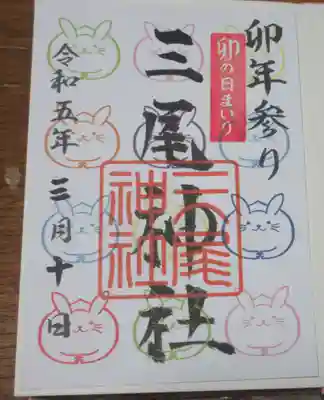 卯年参り
卯の日まいり
三尾神社
三尾
神社
令和五年 三月十日